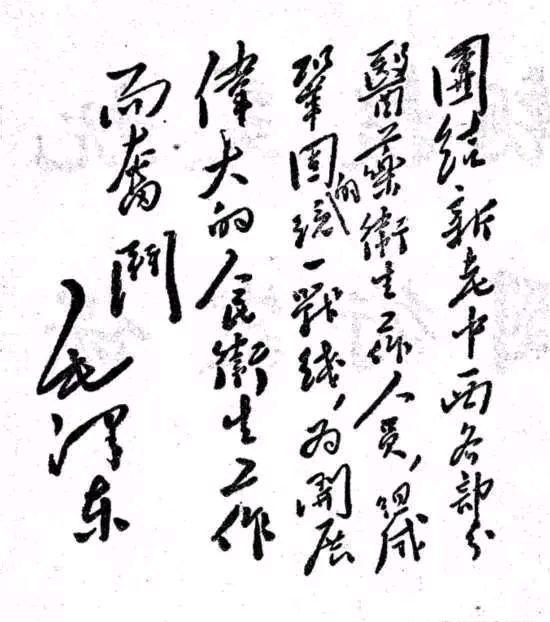 團結新老中西各部分
醫藥衛生工作人員，組成
鞏固的統一戰綫，為開展
偉大的人民衛生工作
而奮鬥
毛澤东